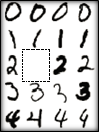 0 0 0 0
1 1 1 1
2 2 2
3 3 3 3
4 4 4 4